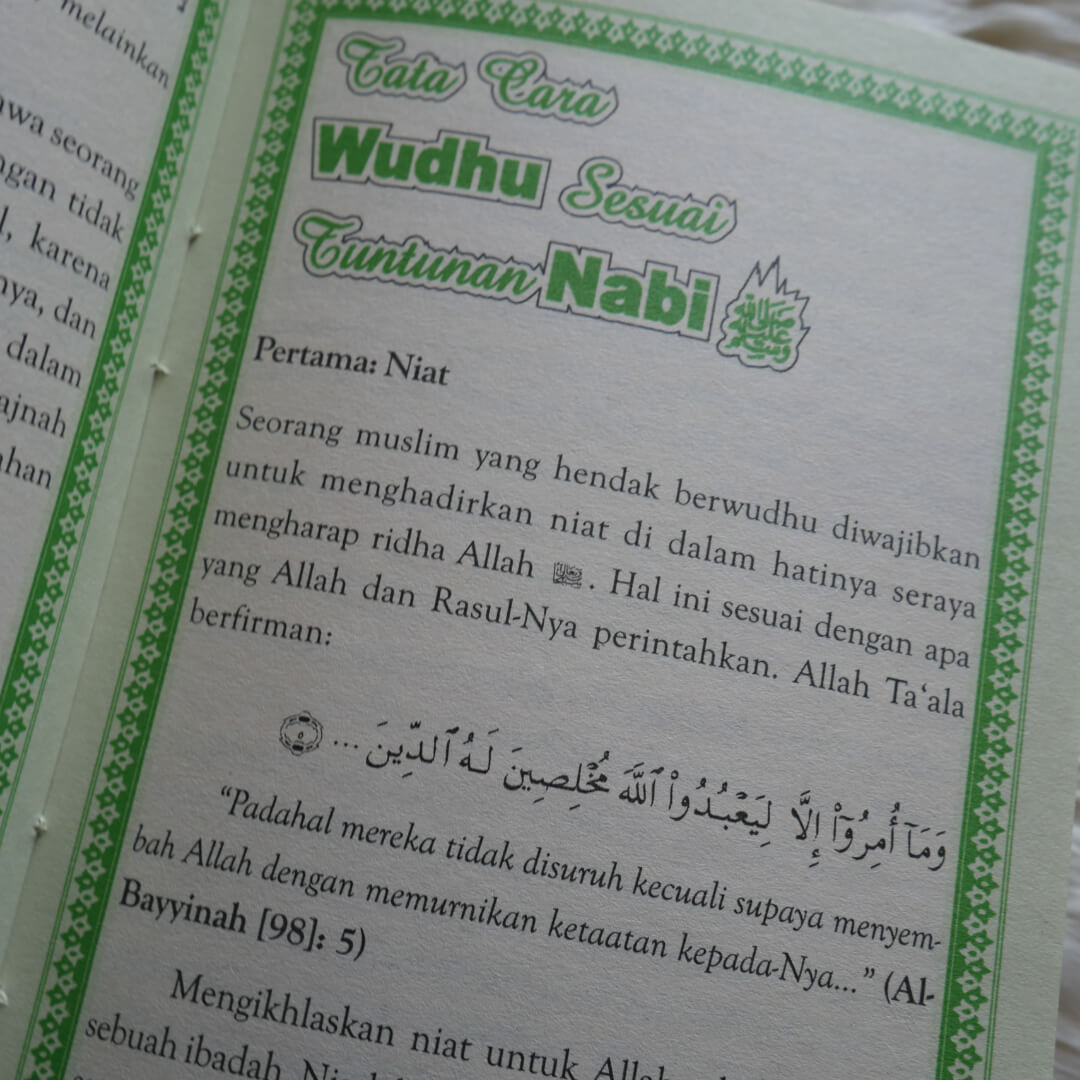 melainkan
seorang
tidak
karena
dan
dalam
Tata Cara
Wudhu Sesuai
Tuntunan Nabi ﷺ
Pertama: Niat
Seorang muslim yang hendak berwudhu diwajibkan
untuk menghadirkan niat di dalam hatinya seraya
mengharap ridha Allah ﷻ. Hal ini sesuai dengan apa
yang Allah dan Rasul-Nya perintahkan. Allah Ta‘ala
berfirman:
وَمَآ أُمِرُوٓا۟ إِلَّا لِيَعْبُدُوا۟ ٱللَّهَ مُخْلِصِينَ لَهُ ٱلدِّينَ ... ٥
“Padahal mereka tidak disuruh kecuali supaya menyem-
bah Allah dengan memurnikan ketaatan kepada-Nya...” (Al-
Bayyinah [98]: 5)
Mengikhlaskan niat untuk Allah
sebuah ibadah.